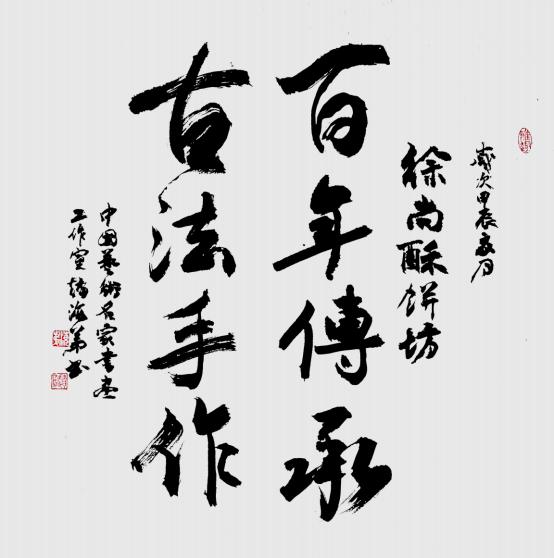 歲次甲辰夏月
徐尚酥餅坊
百年傳承
古法手作
中国藝術名家書画
工作室韓海第書